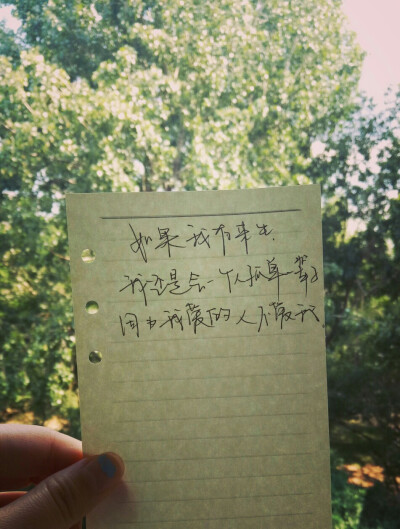 如果我有来生.
我还是会一个人孤单一辈子
因为我爱的人不爱我.